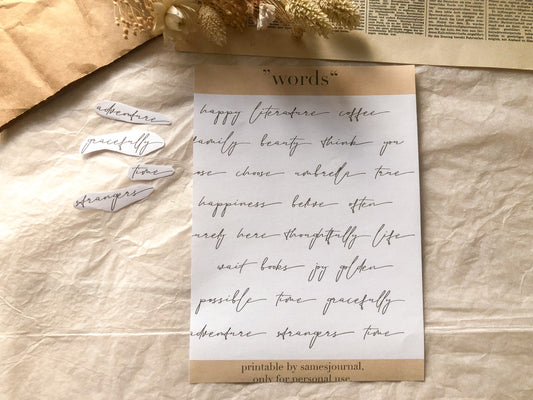 "words"
happy literature coffee
family beauty think you
ose choose umbrella true
happiness belove often
urely here thoughtfully life
wait books joy golden
possible time gracefully
adventure strangers time
printable by samesjournal,
only for personal use
adventure
gracefully
time
strangers